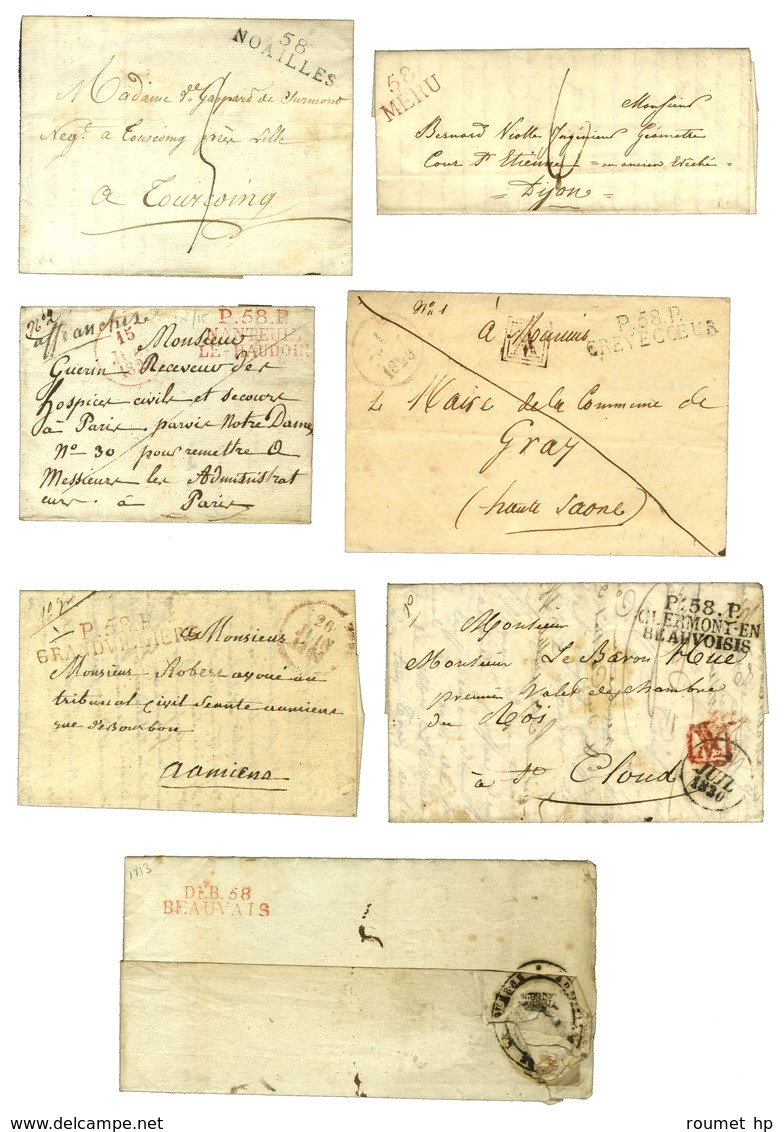 58
NOAILLES
Madame Ve Gaspard de Surmont
Negt. a Tourcoing près Lille
a Tourcoing
58
MERU
Monsieur
Bernard Violle Ingénieur Géomettre
Cour St Etienne = ou ancien Evéché =
= Dijon =
affranchie
15
P.58.P.
NANTEUIL
LE-HAUDOIN
Monsieur
Guerin Receveur des
hospices civils et secours
à Paris parvis Notre Dame
No 30 pour remettre a
Messieurs les Administrat
eurs à Paris
1
1828
No 1
A
P.58.P.
CREVECŒUR
à Monsieur
Le Maire de la Commune de
Gray
(haute Saone)
P.58.P.
GRANDVILLIERS
26
JUIN
a Monsieur
Monsieur Robert avoué au
tribunal Civil Séante aamiens
rue de Bourbon
aamiens
P.58.P.
CLERMONT-EN
BEAUVOISIS
Monsieur
Monsieur Le Baron Hüe
premier Valet de Chambre
du Roi
à St Cloud
JUIL
1830
1813
DEB.58
BEAUVAIS
roumet hp